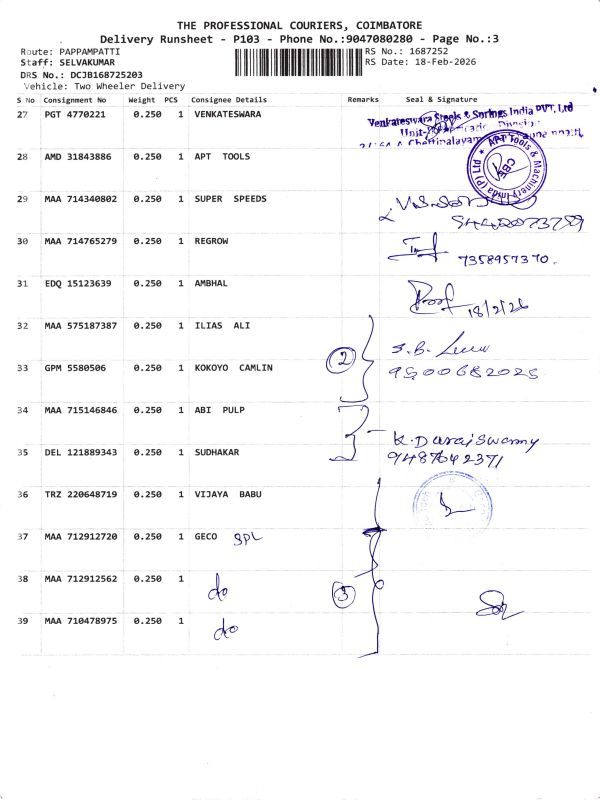 THE PROFESSIONAL COURIERS, COIMBATORE
Delivery Runsheet - P103 - Phone No.:9047080280 - Page No.:3
Route: PAPPAMPATTI RS No.: 1687252
Staff: SELVAKUMAR RS Date: 18-Feb-2026
DRS No.: DCJB168725203
Vehicle: Two Wheeler Delivery
S No Consignment No Weight PCS Consignee Details Remarks Seal & Signature
27 PGT 4770221 0.250 1 VENKATESWARA
Venkateswara Steels & Springs India PVT. Ltd
28 AMD 31843886 0.250 1 APT TOOLS
APT Tools & Machinery India (P) Ltd
CBE
29 MAA 714340802 0.250 1 SUPER SPEEDS
30 MAA 714765279 0.250 1 REGROW
7358957370.
31 EDQ 15123639 0.250 1 AMBHAL
18/2/26
32 MAA 575187387 0.250 1 ILIAS ALI
2
S.B.
33 GPM 5580506 0.250 1 KOKOYO CAMLIN
9500682025
34 MAA 715146846 0.250 1 ABI PULP
K. Duraiswamy
35 DEL 121889343 0.250 1 SUDHAKAR
9487642371
36 TRZ 220648719 0.250 1 VIJAYA BABU
37 MAA 712912720 0.250 1 GECO SPL
38 MAA 712912562 0.250 1 do
3
39 MAA 710478975 0.250 1 do